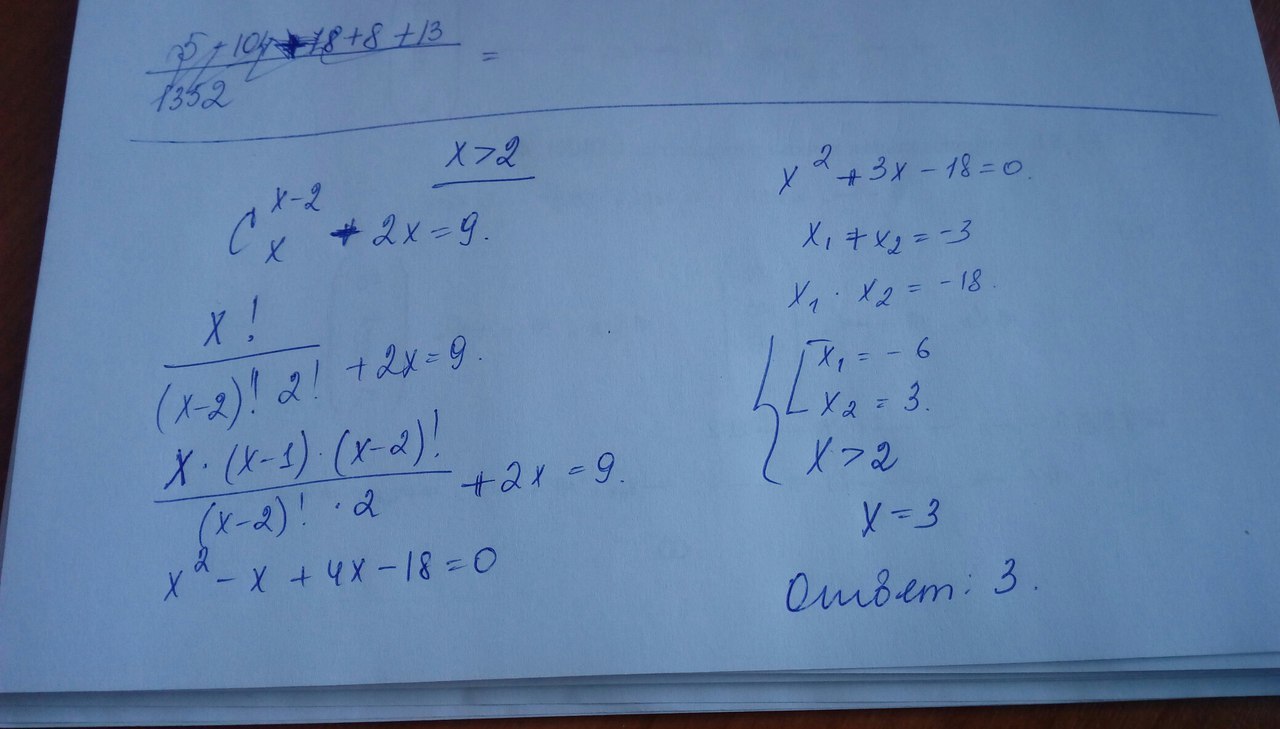 5 + 104 + 18 + 8 + 13 =
1352
x > 2
C_x^{x-2} + 2x = 9.
x!
(x-2)! 2! + 2x = 9.
x · (x-1) · (x-2)!
(x-2)! · 2 + 2x = 9.
x² - x + 4x - 18 = 0
x² + 3x - 18 = 0.
x₁ + x₂ = -3
x₁ · x₂ = -18.
x₁ = -6
x₂ = 3.
x > 2
x = 3
Ответ: 3.